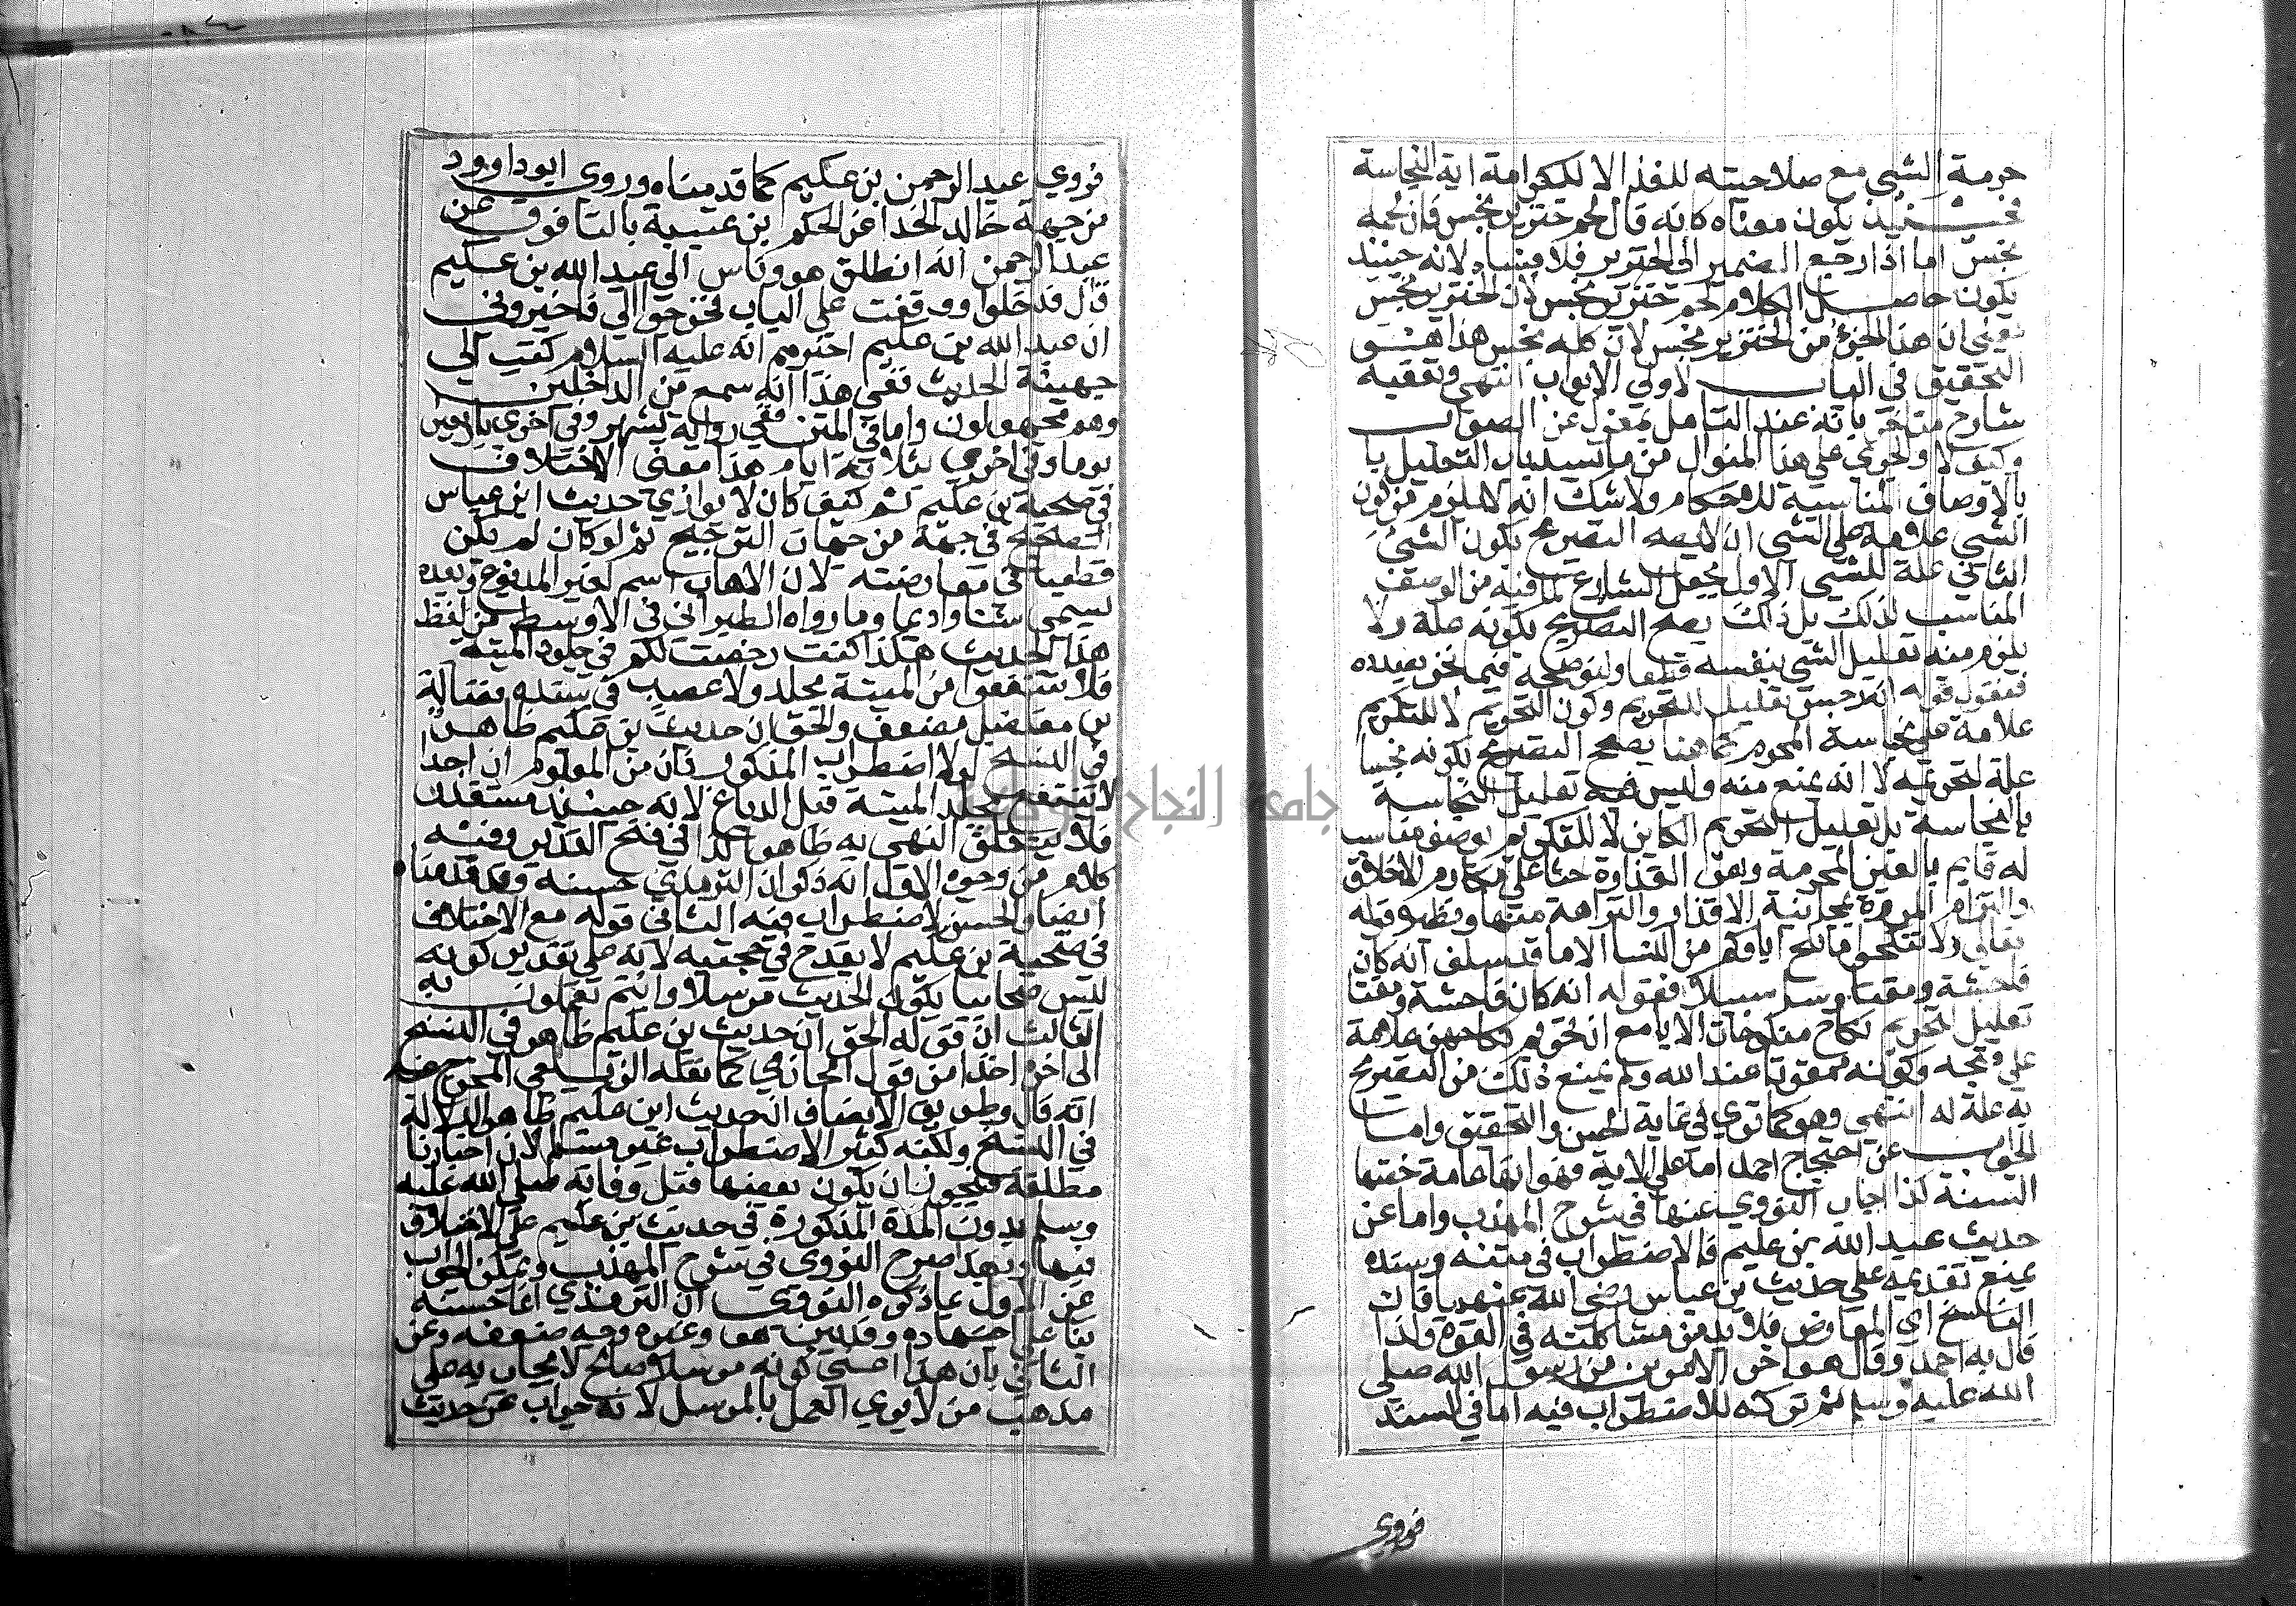 حرمة الشي مع صلاحيته للغذا لا للكرامة اية النجاسة
فحينئذ يكون معناه كانه قال لحم خنزير نجس فان لحمه
نجس اما اذا رجع الضمير الى الخنزير فلا فساد لانه حينئد
يكون حاصل الكلام لحم خنزير نجس لان الخنزير نجس
يعني ان هذا الجزء من الخنزير نجس لان كله نجس هذا هو
التحقيق في الباب لاولي الالباب انتهى وتعقبه
شارح متاخر بانه عند التامل بمعزل عن الصواب
وكيف لا والجري على هذا المنوال من ما يسد باب التعليل با
بالاوصاف المناسبة للاحكام ولا شك انه لا يلزم من كون
الشي علامة على الشي ان لا يصح التصريح بكون الشيء
الثاني علة للشي الاول بجعل الشارع لما فيه من الوصف
المناسب لذلك بل ذلك يصح التصريح بكونه علة ولا
يلزم منه تعليل الشي بنفسه قطعا ولنوضحه فيما نحن بصدده
فنقول قوله انه رجس تعليل للتحريم وكون التحريم لا للتكريم
علامة على نجاسة المحرم كما هنا يصحح التصريح بكونه نجسا
علة لتحريمه لا انه يمنع منه وليس فيه تعليل النجاسة
بالنجاسة بل تعليل التحريم الكاين لا للتكريم بوصف مناسب
له قايم بالعين المحرمة وهو القذارة حثا على مكارم الاخلاق
والتزام المروة بمجانبة الاقذار والنزاهة منها ونظيره قوله
تعالى ولا تنكحوا ما نكح اباوكم من النسا الا ما قد سلف انه كان
فاحشة ومقتا وساء سبيلا فقوله انه كان فاحشة ومقتا
تعليل لتحريم نكاح منكوحات الابا مع ان تحريم نكاحهن علامة
على قبحه وكونه ممقوتا عند الله ولم يمنع ذلك من التصريح
به علة له انتهى وهو كما ترى في غاية الحسن والتحقيق واما
الجواب عن احتجاج احمد اما على الاية فهو انها عامة خصتها
السنة كذا اجاب النووي عنها في شرح المهذب واما عن
حديث عبد الله بن عكيم فالاضطراب في متنه وسنده
يمنع تقديمه على حديث بن عباس رضي الله عنهما فان
الناسخ اي المعارض فلا بد من مشاكلته في القوة ولذا
قال به احمد وقال هو اخر الامرين من رسول الله صلى
الله عليه وسلم ثم تركه للاضطراب فيه اما في السند
فروي
فروي عبد الرحمن بن عكيم كما قدمناه وروى ابو داوود
من جهة خالد الحذا عن الحكم بن عتيبة بالتا فوق عن
عبد الرحمن انه انطلق هو وناس الى عبد الله بن عكيم
قال فدخلوا ووقفت على الباب فخرجوا الي فاخبروني
ان عبد الله بن عكيم اخبرهم انه عليه السلام كتب الى
جهينة الحديث ففي هذا انه سمع من الداخلين
وهم مجهولون واما في المتن ففي رواية بشهر وفي اخرى باربعين
يوما وفي اخرى بثلاثة ايام هذا معنى الاختلاف
في صحبة بن عكيم ثم كيف كان لا يوازي حديث ابن عباس
الصحيح في جهة من جهات الترجيح ثم لو كان لم يكن
قطعيا في معارضته لان الاهاب اسم لغير المدبوغ وبعده
يسمى شنا واديما وما رواه الطبراني في الاوسط من لفظ
هذا الحديث هكذا كنت رخصت لكم في جلود الميتة
فلا تنتفعوا من الميتة بجلد ولا عصب في سنده فضالة
بن مفضل مضعف والحق ان حديث بن عكيم ظاهر
في النسخ لولا اضطراب المذكور فان من المعلوم ان احدا
لا ينتفع بجلد الميتة قبل الدباغ لانه حينئذ مستقذر
فلا يتعلق النهي به ظاهرا كذا في فتح القدير وفيه
كلام من وجوه الاول انه ذكر ان الترمذي حسنه وقد قدمناه
ايضا والحسن لا اضطراب فيه الثاني قوله مع الاختلاف
في صحبة بن عكيم لا يقدح في حجتيه لانه على تقدير كونه
ليس صحابيا يكون الحديث مرسلا وانتم تعملون به
الثالث ان قوله الحق ان حديث بن عكيم ظاهر في النسخ
الى اخره اخذا من قول الحازمي كما نقله الزيلعي المخرج عنه
انه قال وطريق الانصاف ان حديث ابن عكيم ظاهر الدلالة
في النسخ ولكنه كثير الاضطراب غير مسلم لان اخبارنا
مطلقة فيجوز ان يكون بعضها قبل وفاته صلى الله عليه
وسلم بدون المدة المذكورة في حديث بن عكيم على الاختلاف
فيها وبهذا صرح النووي في شرح المهذب ويمكن الجواب
عن الاول بما ذكره النووي ان الترمذي انما حسنه
بنا على اجتهاده وقد بين هو وغيره وجه ضعفه وعن
الثاني بان هذا اعني كونه مرسلا صالح لا يجاب به على
مذهب من لا يرى العمل بالمرسل لا انه جواب عن حديث
جامعة النجاح الوطنية